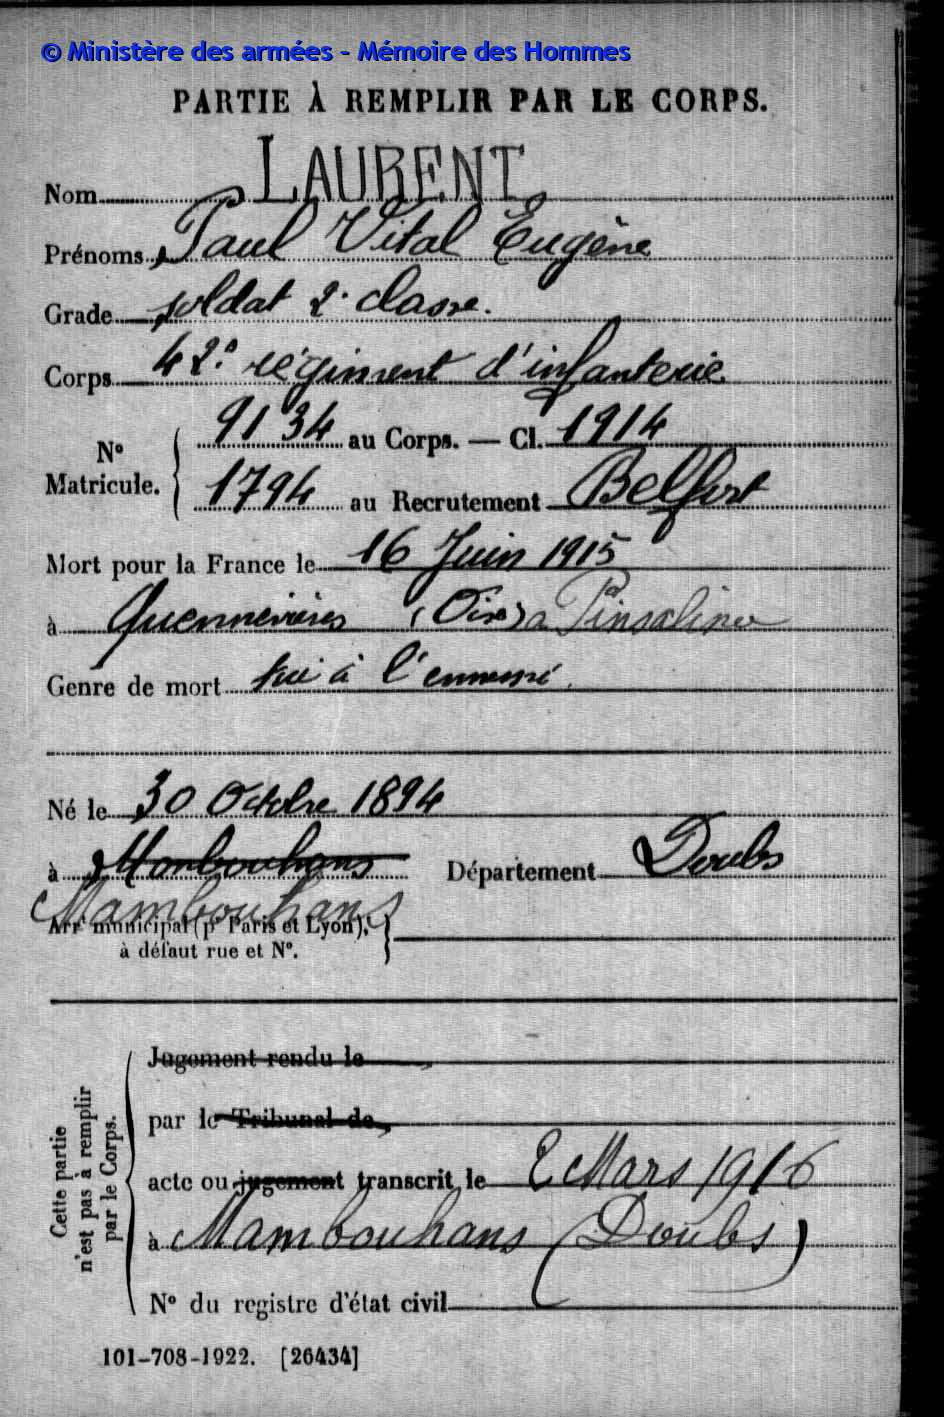 © Ministère des armées - Mémoire des Hommes
PARTIE À REMPLIR PAR LE CORPS.
Nom LAURENT
Prénoms Paul Vital Eugène
Grade soldat 2e classe.
Corps 42e régiment d'infanterie
N° Matricule. 9134 au Corps. — Cl. 1914
1794 au Recrutement Belfort
Mort pour la France le 16 Juin 1915
à Quennevières (Oise) a
Genre de mort tué à l'ennemi.
Né le 30 Octobre 1894
à Montbouhans Département Doubs
Mambouhans
Arrt municipal (pr Paris et Lyon),
à défaut rue et N°.
Cette partie
n'est pas à remplir
par le Corps.
Jugement rendu le
par le Tribunal de
acte ou jugement transcrit le 2 Mars 1916
à Mambouhans (Doubs)
N° du registre d'état civil
101-708-1922. [26434]